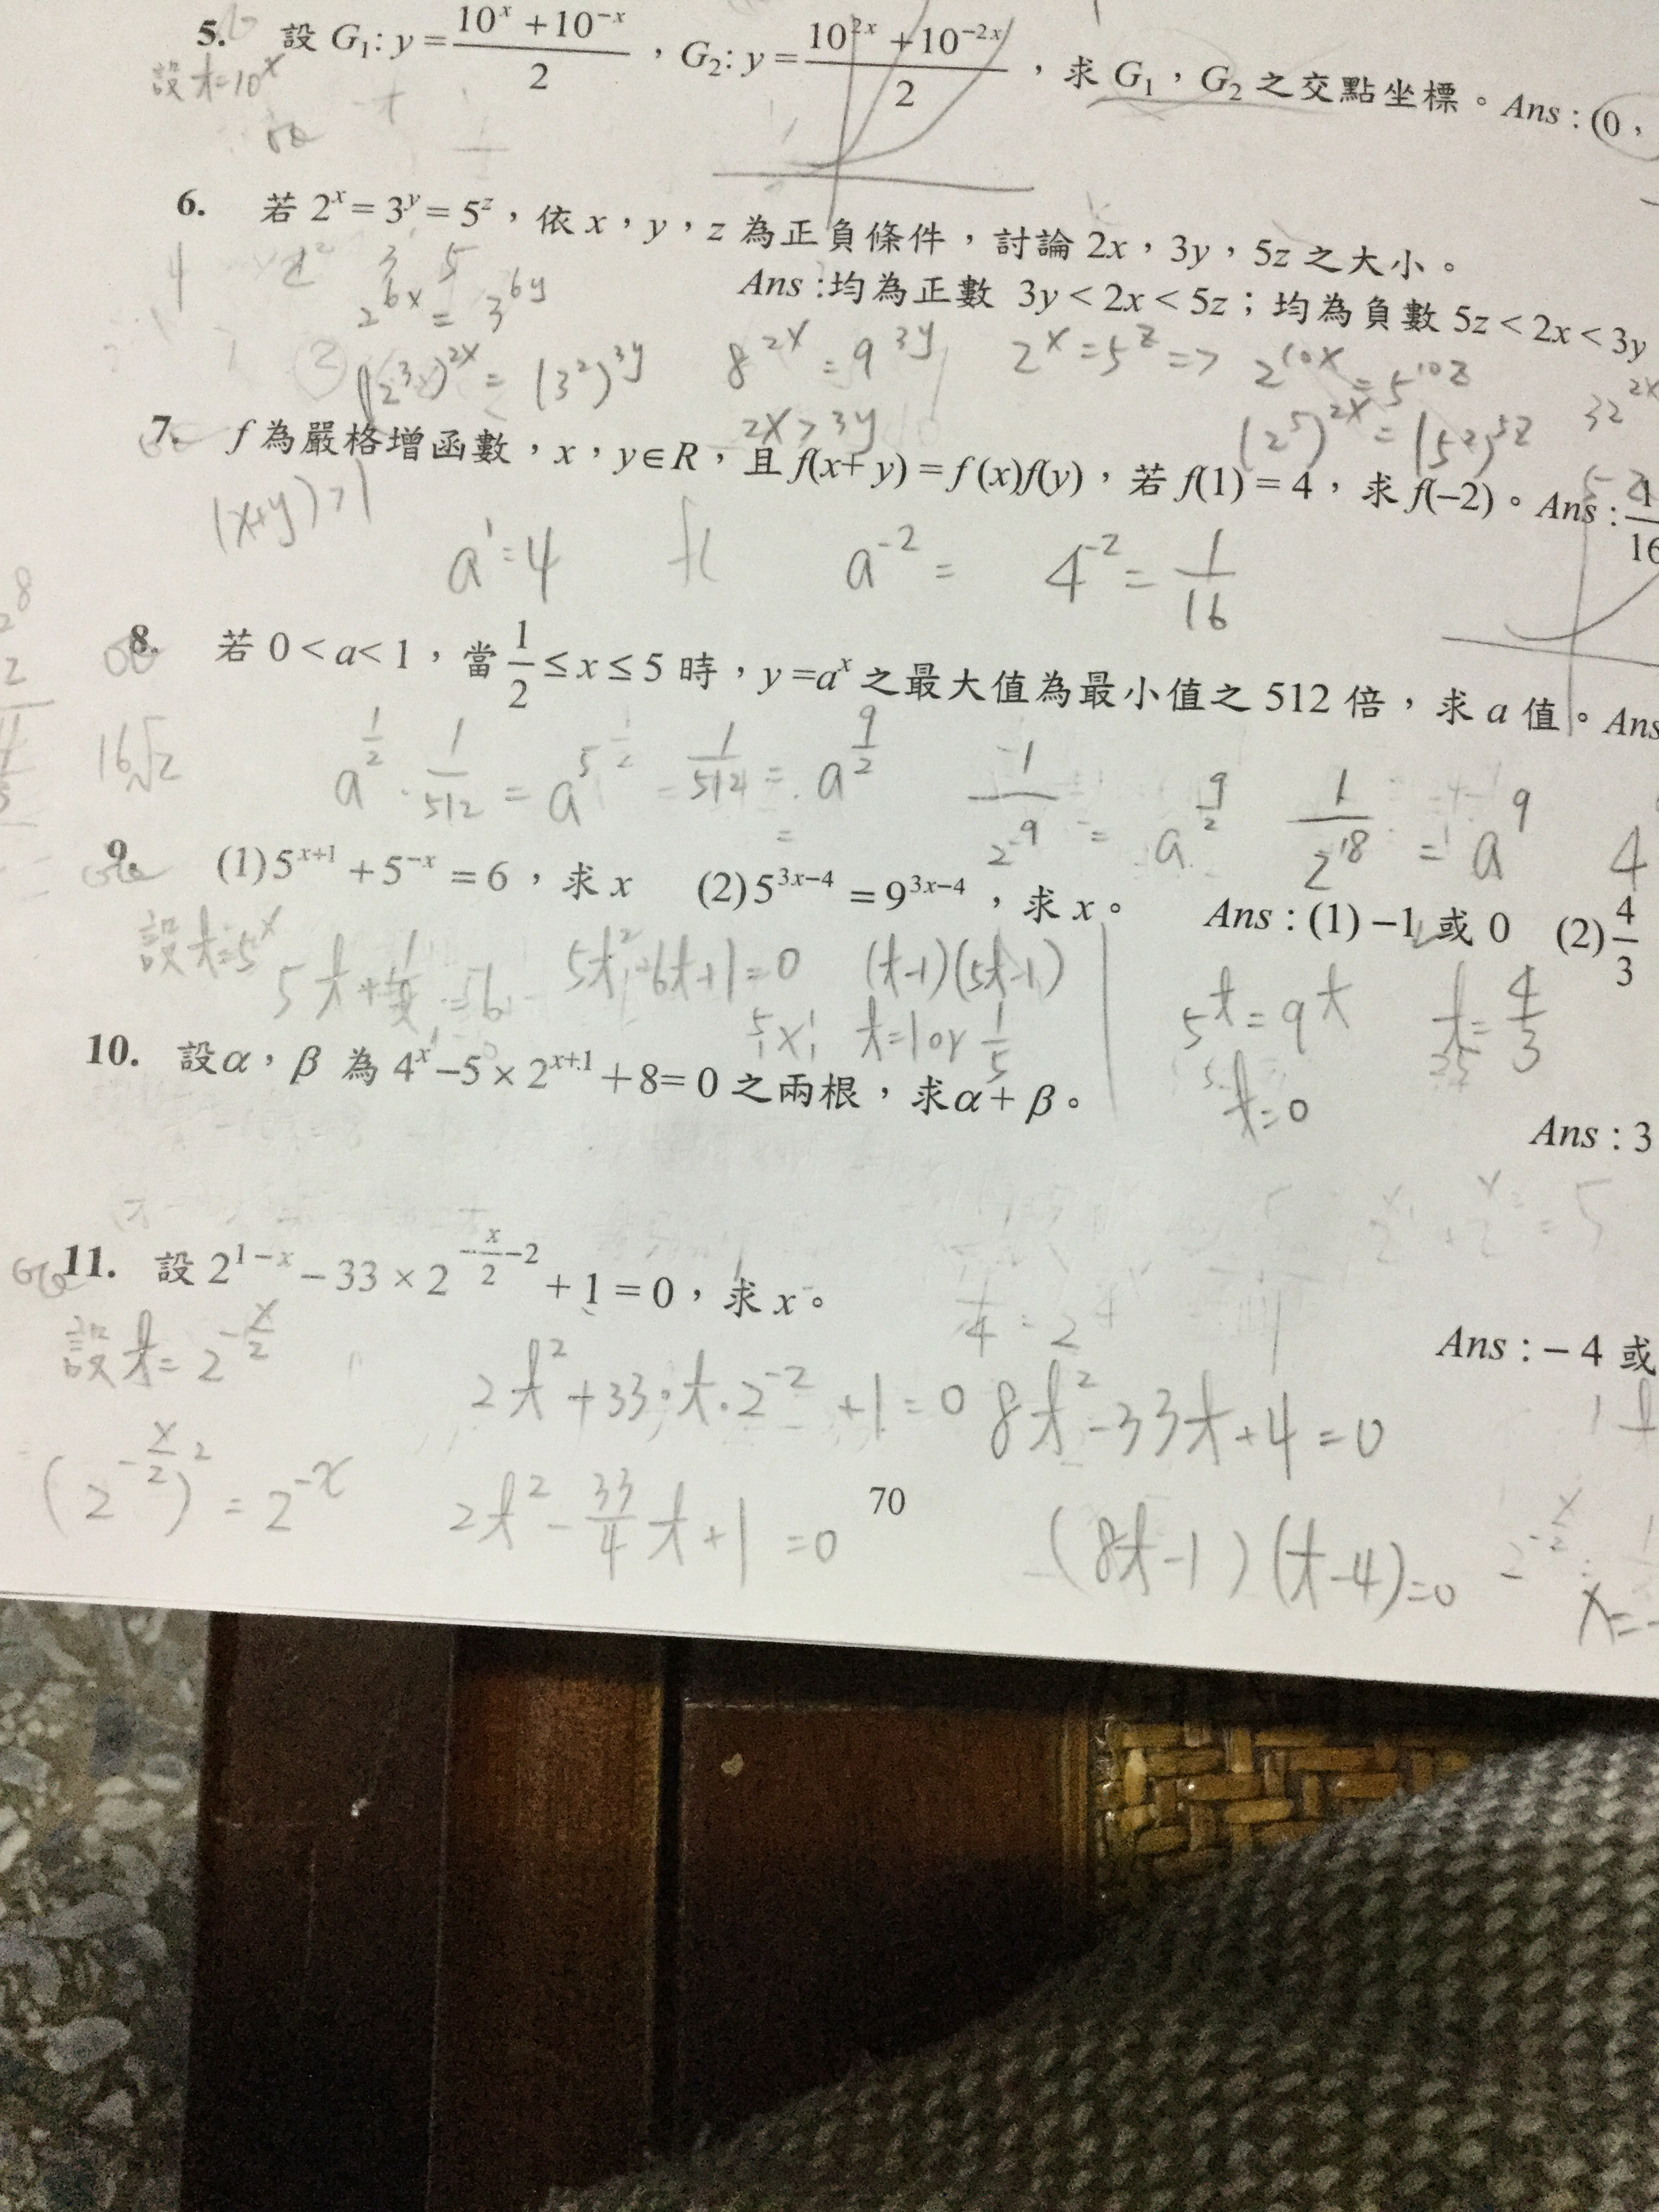 5. 設 G₁: y = (10ˣ + 10⁻ˣ)/2 ，G₂: y = (10²ˣ + 10⁻²ˣ)/2 ，求 G₁，G₂ 之交點坐標。Ans : (0，
設 t=10ˣ
6. 若 2ˣ = 3ʸ = 5ᶻ，依 x，y，z 為正負條件，討論 2x，3y，5z 之大小。
Ans :均為正數 3y < 2x < 5z；均為負數 5z < 2x < 3y
2^{6x} = 3^{6y}
(2³)^{2x} = (3²)^{3y} 8^{2x} = 9^{3y} 2ˣ = 5ᶻ => 2^{10x} = 5^{10z}
2x > 3y (2⁵)^{2x} = (5²)^{5z} 32^{2x}
7. f 為嚴格增函數，x，y∈R，且 f(x+ y) = f (x)f(y)，若 f(1) = 4，求 f(−2)。Ans : 1/16
(x+y) > 1
a¹ = 4 a⁻² = 4⁻² = 1/16
8. 若 0 < a < 1，當 1/2 ≤ x ≤ 5 時，y =aˣ 之最大值為最小值之 512 倍，求 a 值。Ans
16√2 a^{1/2} · 1/512 = a⁵ = 1/512 = a^{9/2} 1/2⁹ = a^{9/2} 1/2¹⁸ = a⁹ 4
9. (1) 5^{x+1} + 5^{−x} = 6，求 x (2) 5^{3x−4} = 9^{3x−4}，求 x。 Ans : (1) −1 或 0 (2) 4/3
設 t=5ˣ 5t + 1/t = 6 5t²-6t+1=0 (t-1)(5t-1)
t=1 or 1/5
5^t = 9^t t = 4/3
t=0
10. 設 α，β 為 4ˣ −5 × 2^{x+1} + 8= 0 之兩根，求 α + β。
Ans : 3
11. 設 2^{1−x} − 33 × 2^{−x/2 −2} + 1 = 0，求 x。
Ans : − 4 或
設 t= 2^{-x/2} 2t² + 33·t·2⁻² + 1 = 0 8t² - 33t + 4 = 0
(2^{-x/2})² = 2^{-x} 2t² - 33/4 t + 1 = 0 (8t-1)(t-4)=0
70